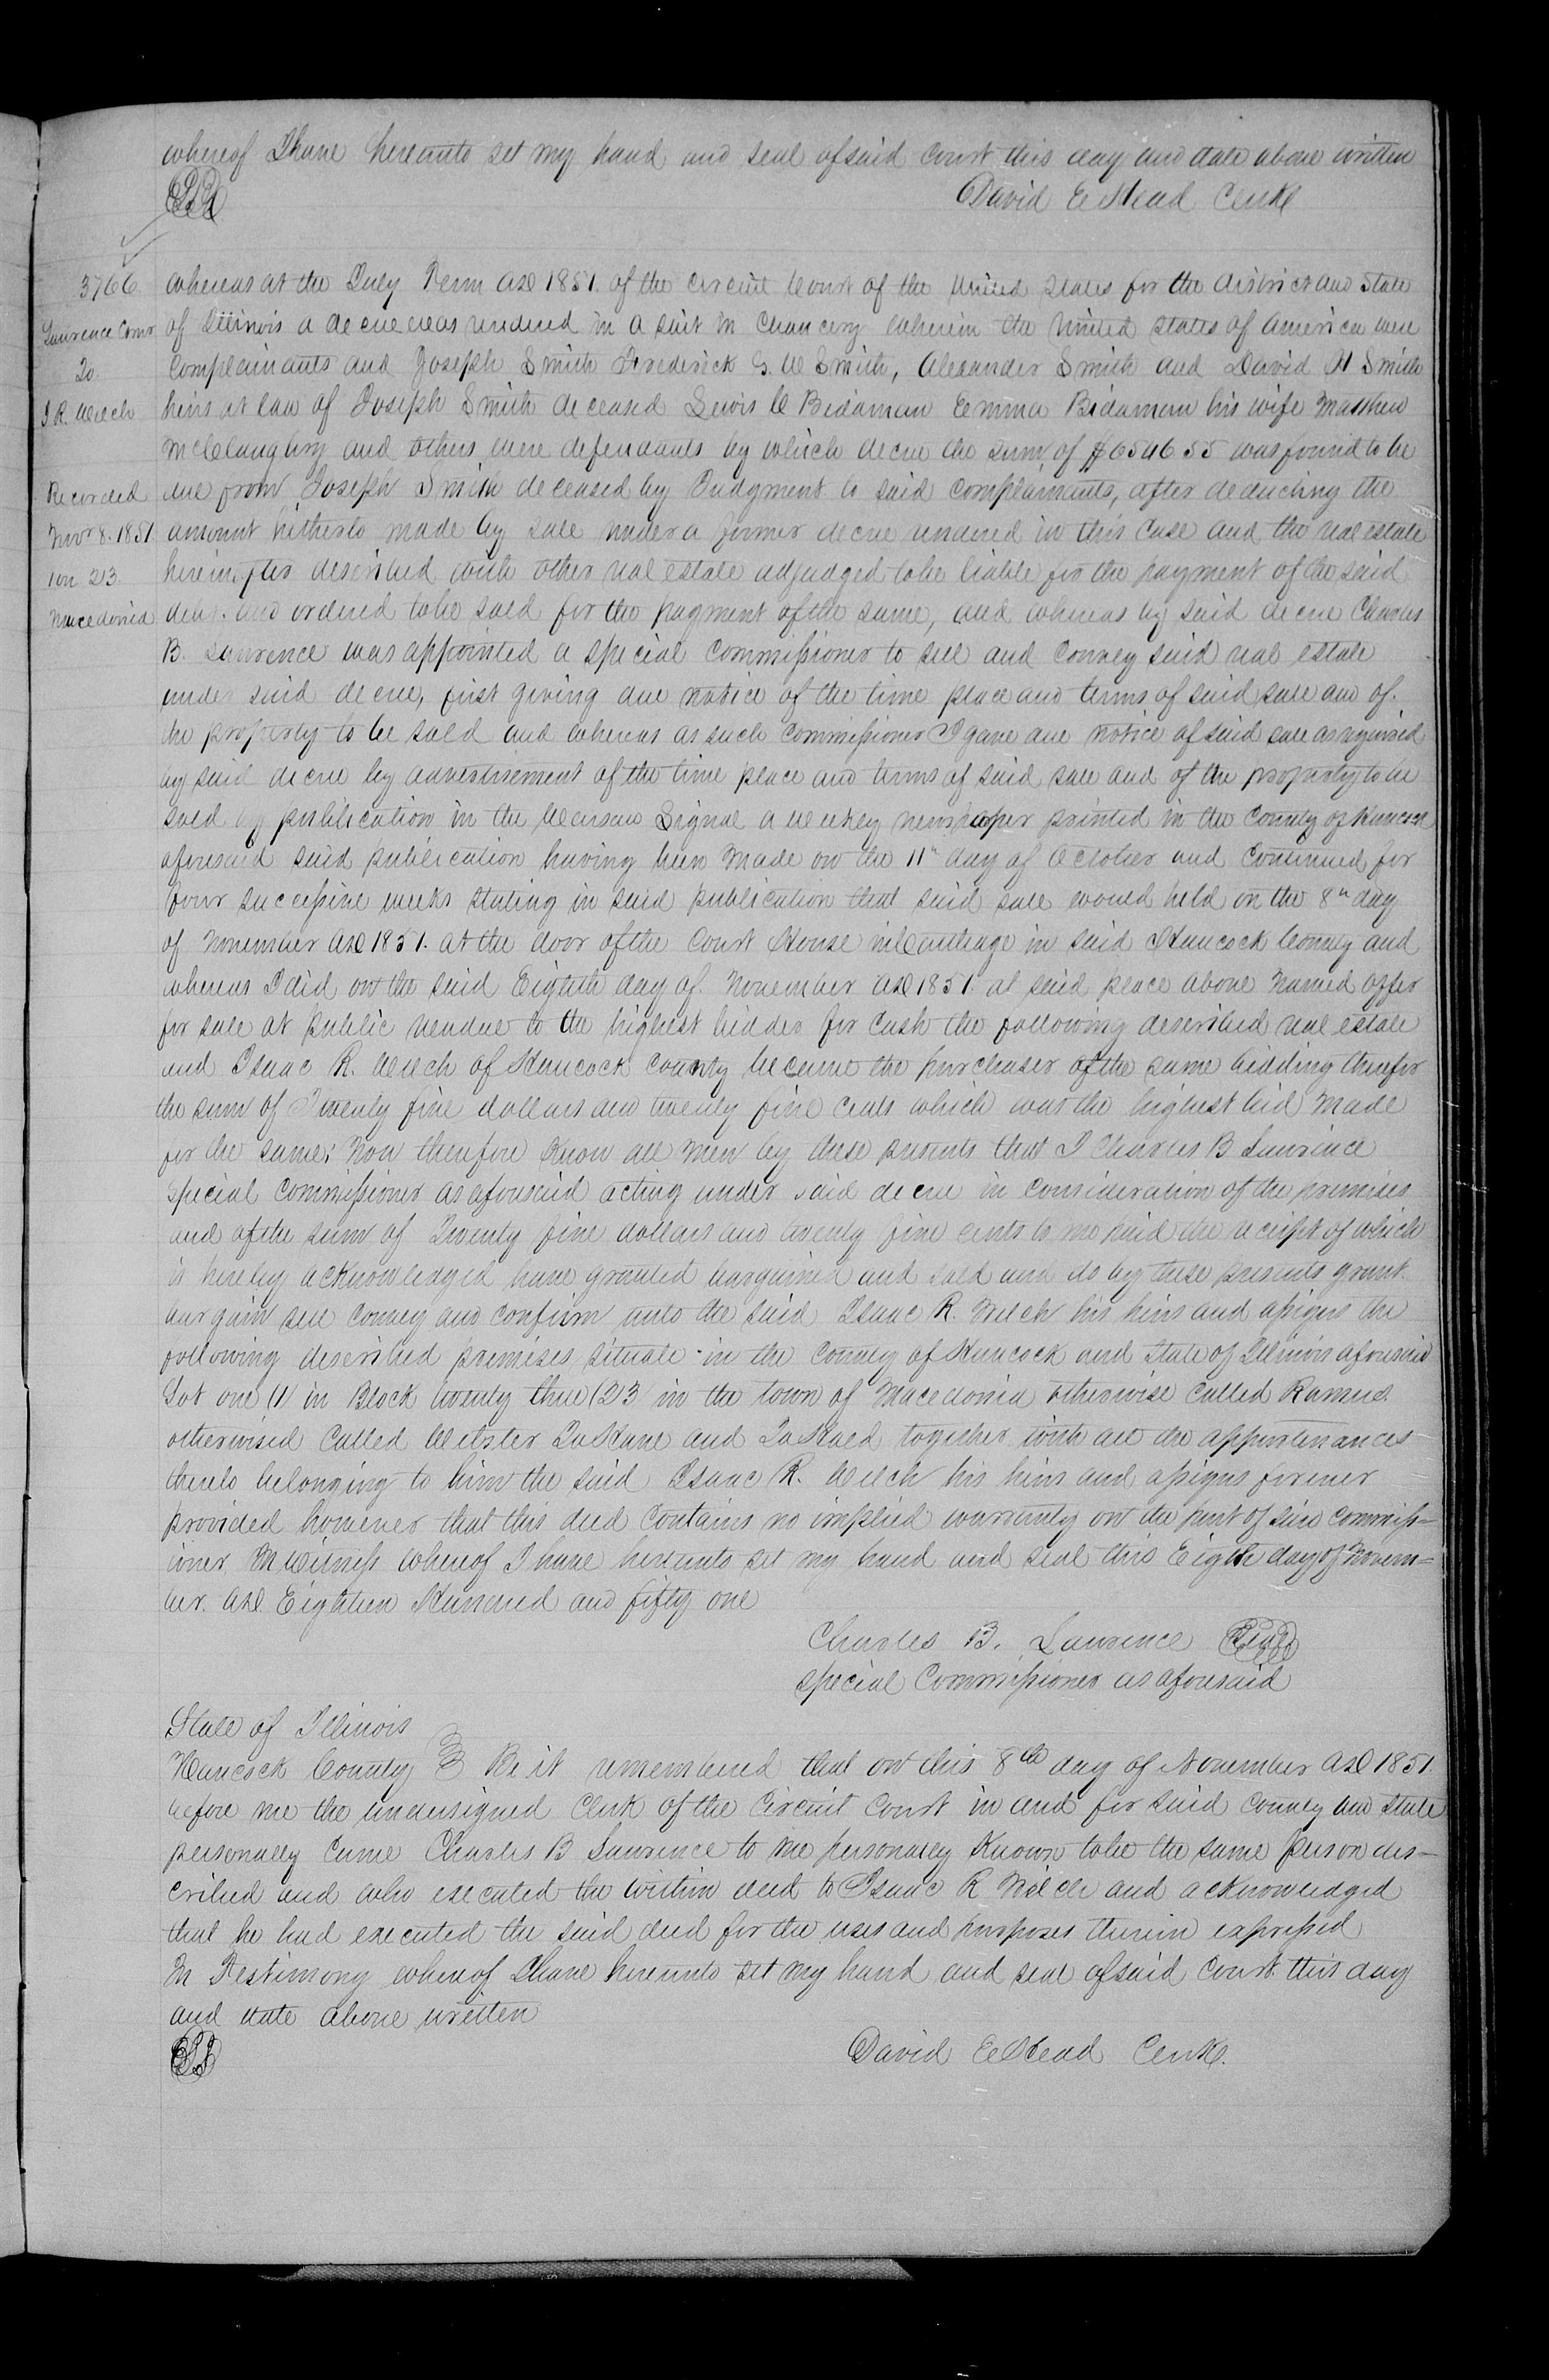 whereof I have hereunto set my hand and seal of said Court this day and date above written
David E Head Clerk
3766
Lawrence Comr
To
I R. Welch
Recorded
Novr 8. 1851
1 in 23
Macedonia
whereas at the July Term AD 1851. of the circuit Court of the United States for the district and State
of Illinois a decree was rendered in a suit in Chancery wherein the United States of America were
Complainants and Joseph Smith Frederick G. W Smith, Alexander Smith and David H Smith
heirs at law of Joseph Smith deceased Lewis C Bidaman Emma Bidaman his wife Matthew
McClaughry and others were defendants by which decree the sum of $6546 55 was found to be
due from Joseph Smith deceased by Judgment to said complainants, after deducting the
amount hitherto made by sale under a former decree rendered in this Case and the real estate
hereinafter described with other real estate adjudged to be liable for the payment of the said
debt. and ordered to be sold for the payment of the same, and whereas by said decree Charles
B. Lawrence was appointed a special Commissioner to sell and Convey said real estate
under said decree, first giving due notice of the time place and terms of said sale and of.
the property to be sold and whereas as such Commissioner I gave due notice of said sale as required
by said decree by advertisement of the time place and terms of said sale and of the property to be
sold by publication in the Warsaw Signal a weekly newspaper printed in the County of Hancock
aforesaid said publication having been made on the 11th day of October and Continued for
four successive weeks stating in said publication that said sale would held on the 8th day
of November AD 1851. at the door of the Court House in Carthage in said Hancock County and
whereas I did on the said Eighth day of November AD 1851. at said place above named offer
for sale at public vendue to the highest bidder for Cash the following described real estate
and Isaac R. Welch of Hancock County became the purchaser of the same bidding therefor
the sum of Twenty five dollars and twenty five cents which was the highest bid made
for the same. Now therefore Know all men by these presents that I Charles B Lawrence
special Commissioner as aforesaid acting under said decree in Consideration of the premises
and of the sum of Twenty five dollars and twenty five cents to me paid the receipt of which
is hereby acknowledged have granted bargained and sold and do by these presents grant.
bargain sell convey and confirm unto the said Isaac R. Welch his heirs and assigns the
following described premises situate in the County of Hancock and State of Illinois aforesaid
Lot one (1) in Block twenty three (23 in the town of Macedonia otherwise Called Ramus
otherwised Called Webster To Have and To Hold together with all the appurtenances
thereto belonging to him the said Isaac R. Welch his heirs and assigns forever
provided however that this deed Contains no implied warranty on the part of said commiss=
ioner. In Witness whereof I have hereunto set my hand and seal this Eighth day of Novem=
ber. AD. Eighteen Hundred and fifty one
Charles B. Lawrence Seal
special Commissioner as aforesaid
State of Illinois
Hancock County Be it remembered that on this 8th day of November AD 1851.
before me the undersigned Clerk of the Circuit Court in and for said County and State
personally Came Charles B Lawrence to me personally Known to be the same person des-
cribed and who executed the within deed to Isaac R Welch and acknowledged
that he had executed the said deed for the uses and purposes therein expressed
In Testimony whereof I have hereunto set my hand and seal of said Court this day
and date above written
David E Head Clerk.